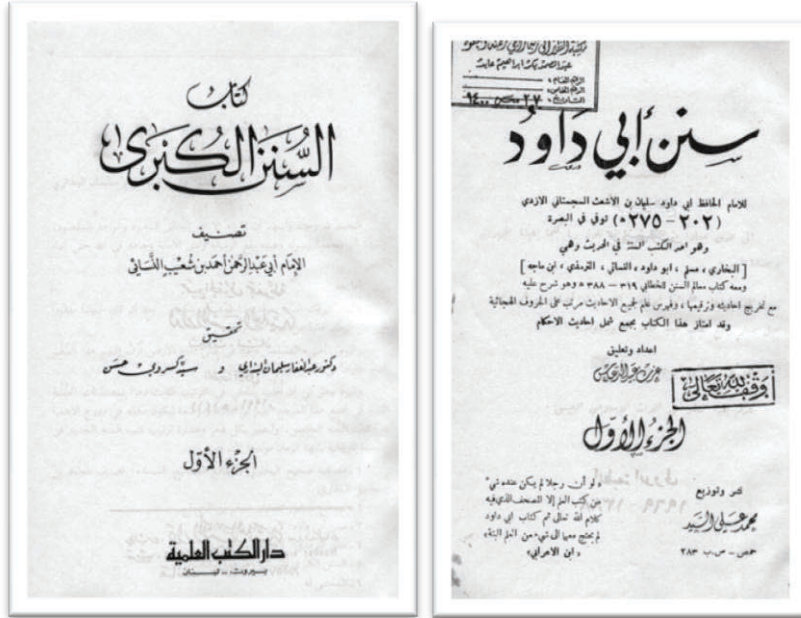 كتاب
السنن الكبرى
تصنيف
الإمام أبي عبد الرحمن أحمد بن شعيب النسائي
تحقيق
دكتور عبد الغفار سليمان البنداري و سيد كسروي حسن
الجزء الأول
دار الكتب العلمية
بيروت - لبنان
سنن أبي داود
للامام الحافظ ابي داود سليمان بن الأشعث السجستاني الازدي
(٢٠٢ – ٢٧٥ھ) توفي في البصرة
وهو احد الكتب الستة في الحديث وهي
[ البخاري ، مسلم ، ابو داود ، النسائي ، الترمذي ، ابن ماجه ]
ومعه كتاب معالم السنن للخطابي ٣١٩ – ٣٨٨ ھ وهو شرح عليه
مع تخريج احاديثه وترقيمها ، وفهرس عام لجميع الاحاديث مرتب على الحروف الهجائية
وقد امتاز هذا الكتاب بجمع شمل احاديث الاحكام
اعداد وتعليق
عزت عبيد الدعاس
وقف لله تعالى
الجزء الأول
«لو أن رجلا لم يكن عنده شيء
من كتب العلم إلا المصحف الذي فيه
كلام الله تعالى ثم كتاب ابي داود
لم يحتج معها الى شيء من العلم البتة»
«ابن الاعرابي»
نشر وتوزيع
محمد علي السيد
حمص – ص.ب ٢٨٣